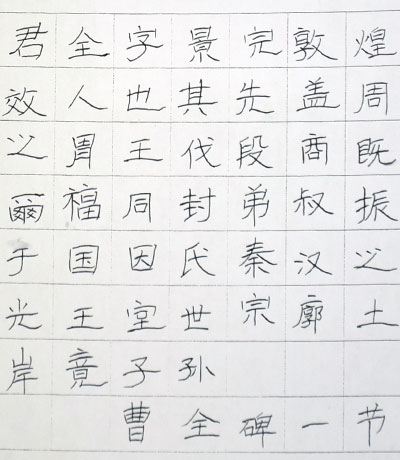 君全字景完敦煌
效人也其先盖周
之胃王伐段商既
爾福同封弟叔振
于国因氏秦汉之
光王室世宗廓土
岸竟子孙
曹全碑一节